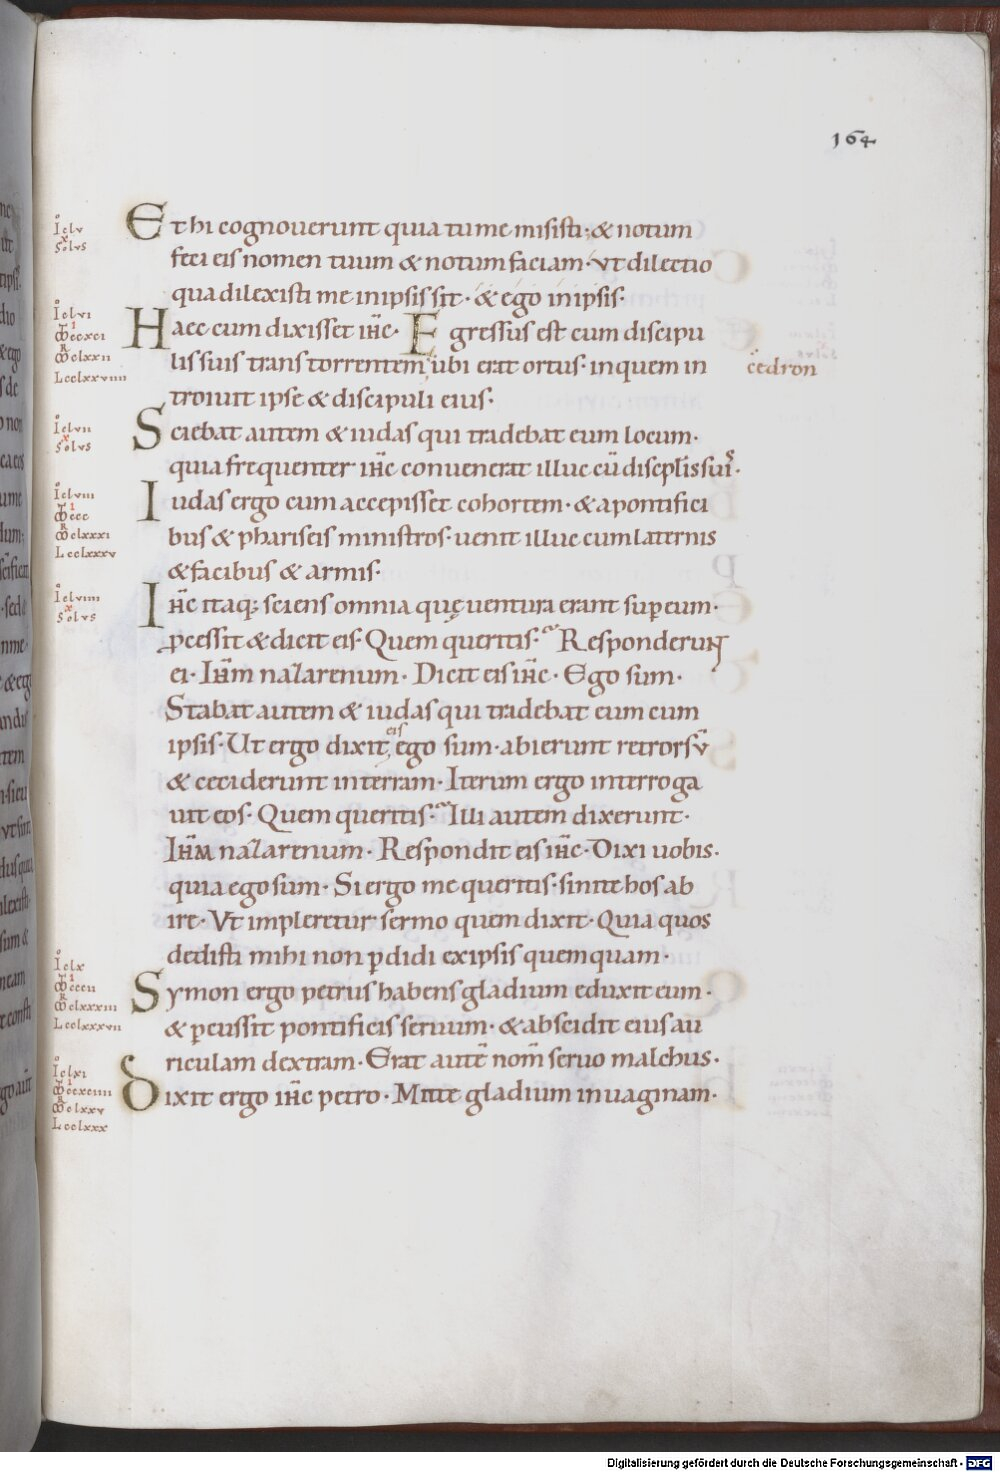 164
Et hi cognouerunt quia tu me misisti · & notum
feci eis nomen tuum & notum faciam · vt dilectio
qua dilexisti me in ipsis sit · & ego in ipsis ·
Haec cum dixisset ih̄c · Egressus est cum discipu
lis suis trans torrentem ubi erat ortus · in quem in
cedron
troiuit ipse & discipuli eius ·
Sciebat autem & iudas qui tradebat eum locum ·
quia frequenter ih̄c conuenerat illuc cū discipl̄is suis ·
Iudas ergo cum accepisset cohortem · & a pontifici
bus & phariseis ministros · uenit illuc cum laternis
& facibus & armis ·
Ih̄c itaq; sciens omnia quę uentura erant sup eum ·
pcessit & dicit eis · Quem queritis · Responderunt
ei · Ih̄m nazarenum · Dicit eis ih̄c · Ego sum ·
Stabat autem & iudas qui tradebat eum cum
ipsis · Ut ergo dixit eis ego sum · abierunt retrorsv̄
& ceciderunt in terram · Iterum ergo interroga
uit eos · Quem queritis · Illi autem dixerunt ·
Ih̄m nazarenum · Respondit eis ih̄c · Dixi uobis ·
quia ego sum · Si ergo me queritis · sinite hos ab
ire · Vt impleretur sermo quem dixit · Quia quos
dedisti mihi non pdidi ex ipsis quemquam ·
Symon ergo petrus habens gladium eduxit eum ·
& pcussit pontificis seruum · & abscidit eius au
riculam dextram · Erat autē nom̄ seruo malchus ·
Dixit ergo ih̄c petro · Mitte gladium in uaginam ·
Iclv
Solvs
Iclvi
Mccxci
Mclxxii
Lcclxxviiii
Iclvii
Solvs
Iclviii
Mccc
Mclxxxi
Lcclxxxv
Iclviiii
Solvs
Iclx
Mcccii
Mclxxxiii
Lcclxxxvii
Iclxi
Mccxciiii
Mclxxv
Lcclxxx
Digitalisierung gefördert durch die Deutsche Forschungsgemeinschaft - DFG